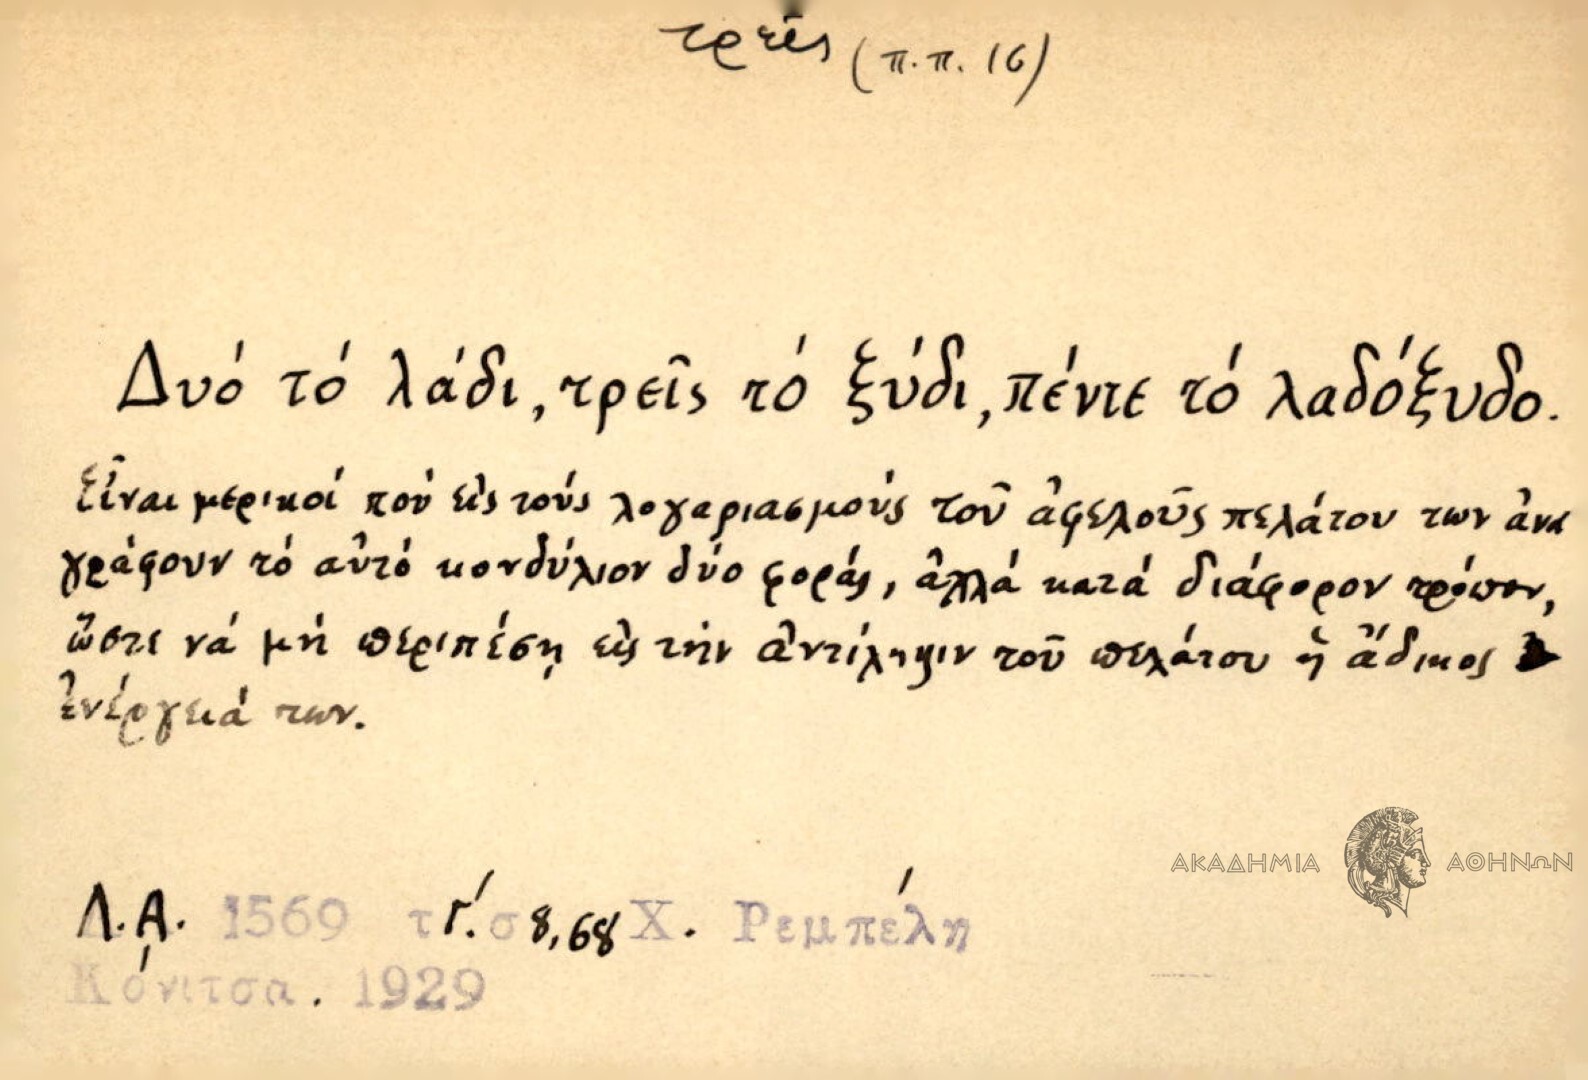 τρεῖς (π.π. 16)
Δυό τό λάδι, τρεῖς τό ξύδι, πέντε τό λαδόξυδο.
Εἶναι μερικοί πού εἰς τούς λογαριασμούς τοῦ ἀφελοῦς πελάτου των ἀνα
γράφουν τό αὐτό κονδύλιον δύο φοράς, ἀλλά κατά διάφορον τρόπον,
ὥστε νά μή περιπέσῃ εἰς τήν ἀντίληψιν τοῦ πελάτου ἡ ἄδικος
ἐνέργειά των.
ΑΚΑΔΗΜΙΑ ΑΘΗΝΩΝ
Λ.Α. 1569 τ Γ΄. σ 8,68 Χ. Ρεμπέλη
Κόνιτσα. 1929